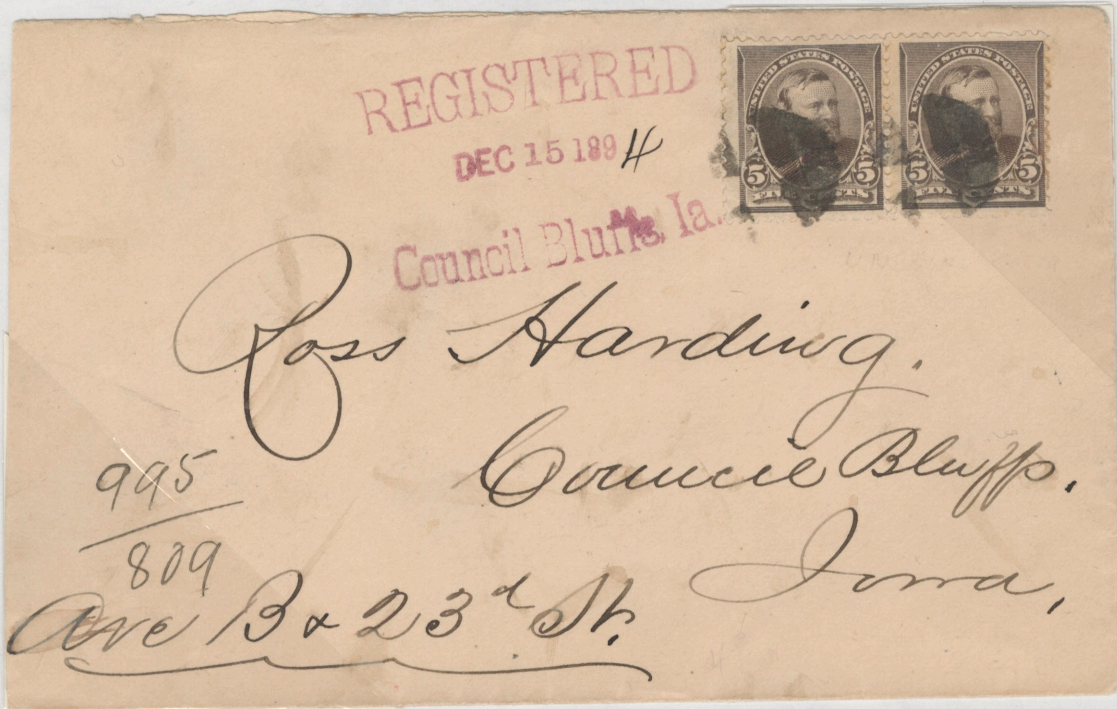 REGISTERED
DEC 15 1894
Council Bluffs, Ia.
UNITED STATES POSTAGE
5 5
FIVE CENTS
UNITED STATES POSTAGE
5 5
FIVE CENTS
Ross Harding.
Council Bluffs.
Iowa,
995
809
Ave B & 23d St.